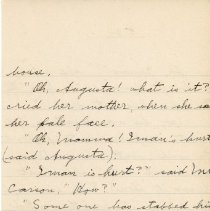 house.
"Oh, Augusta! what is it?
cried her mother, when she sa
her pale face.
"Oh, Momma! Iman's hurt
(said Augusta).
"Iman is hurt?" said Mr
Carson, "How?"
"Some one has stabbed hi